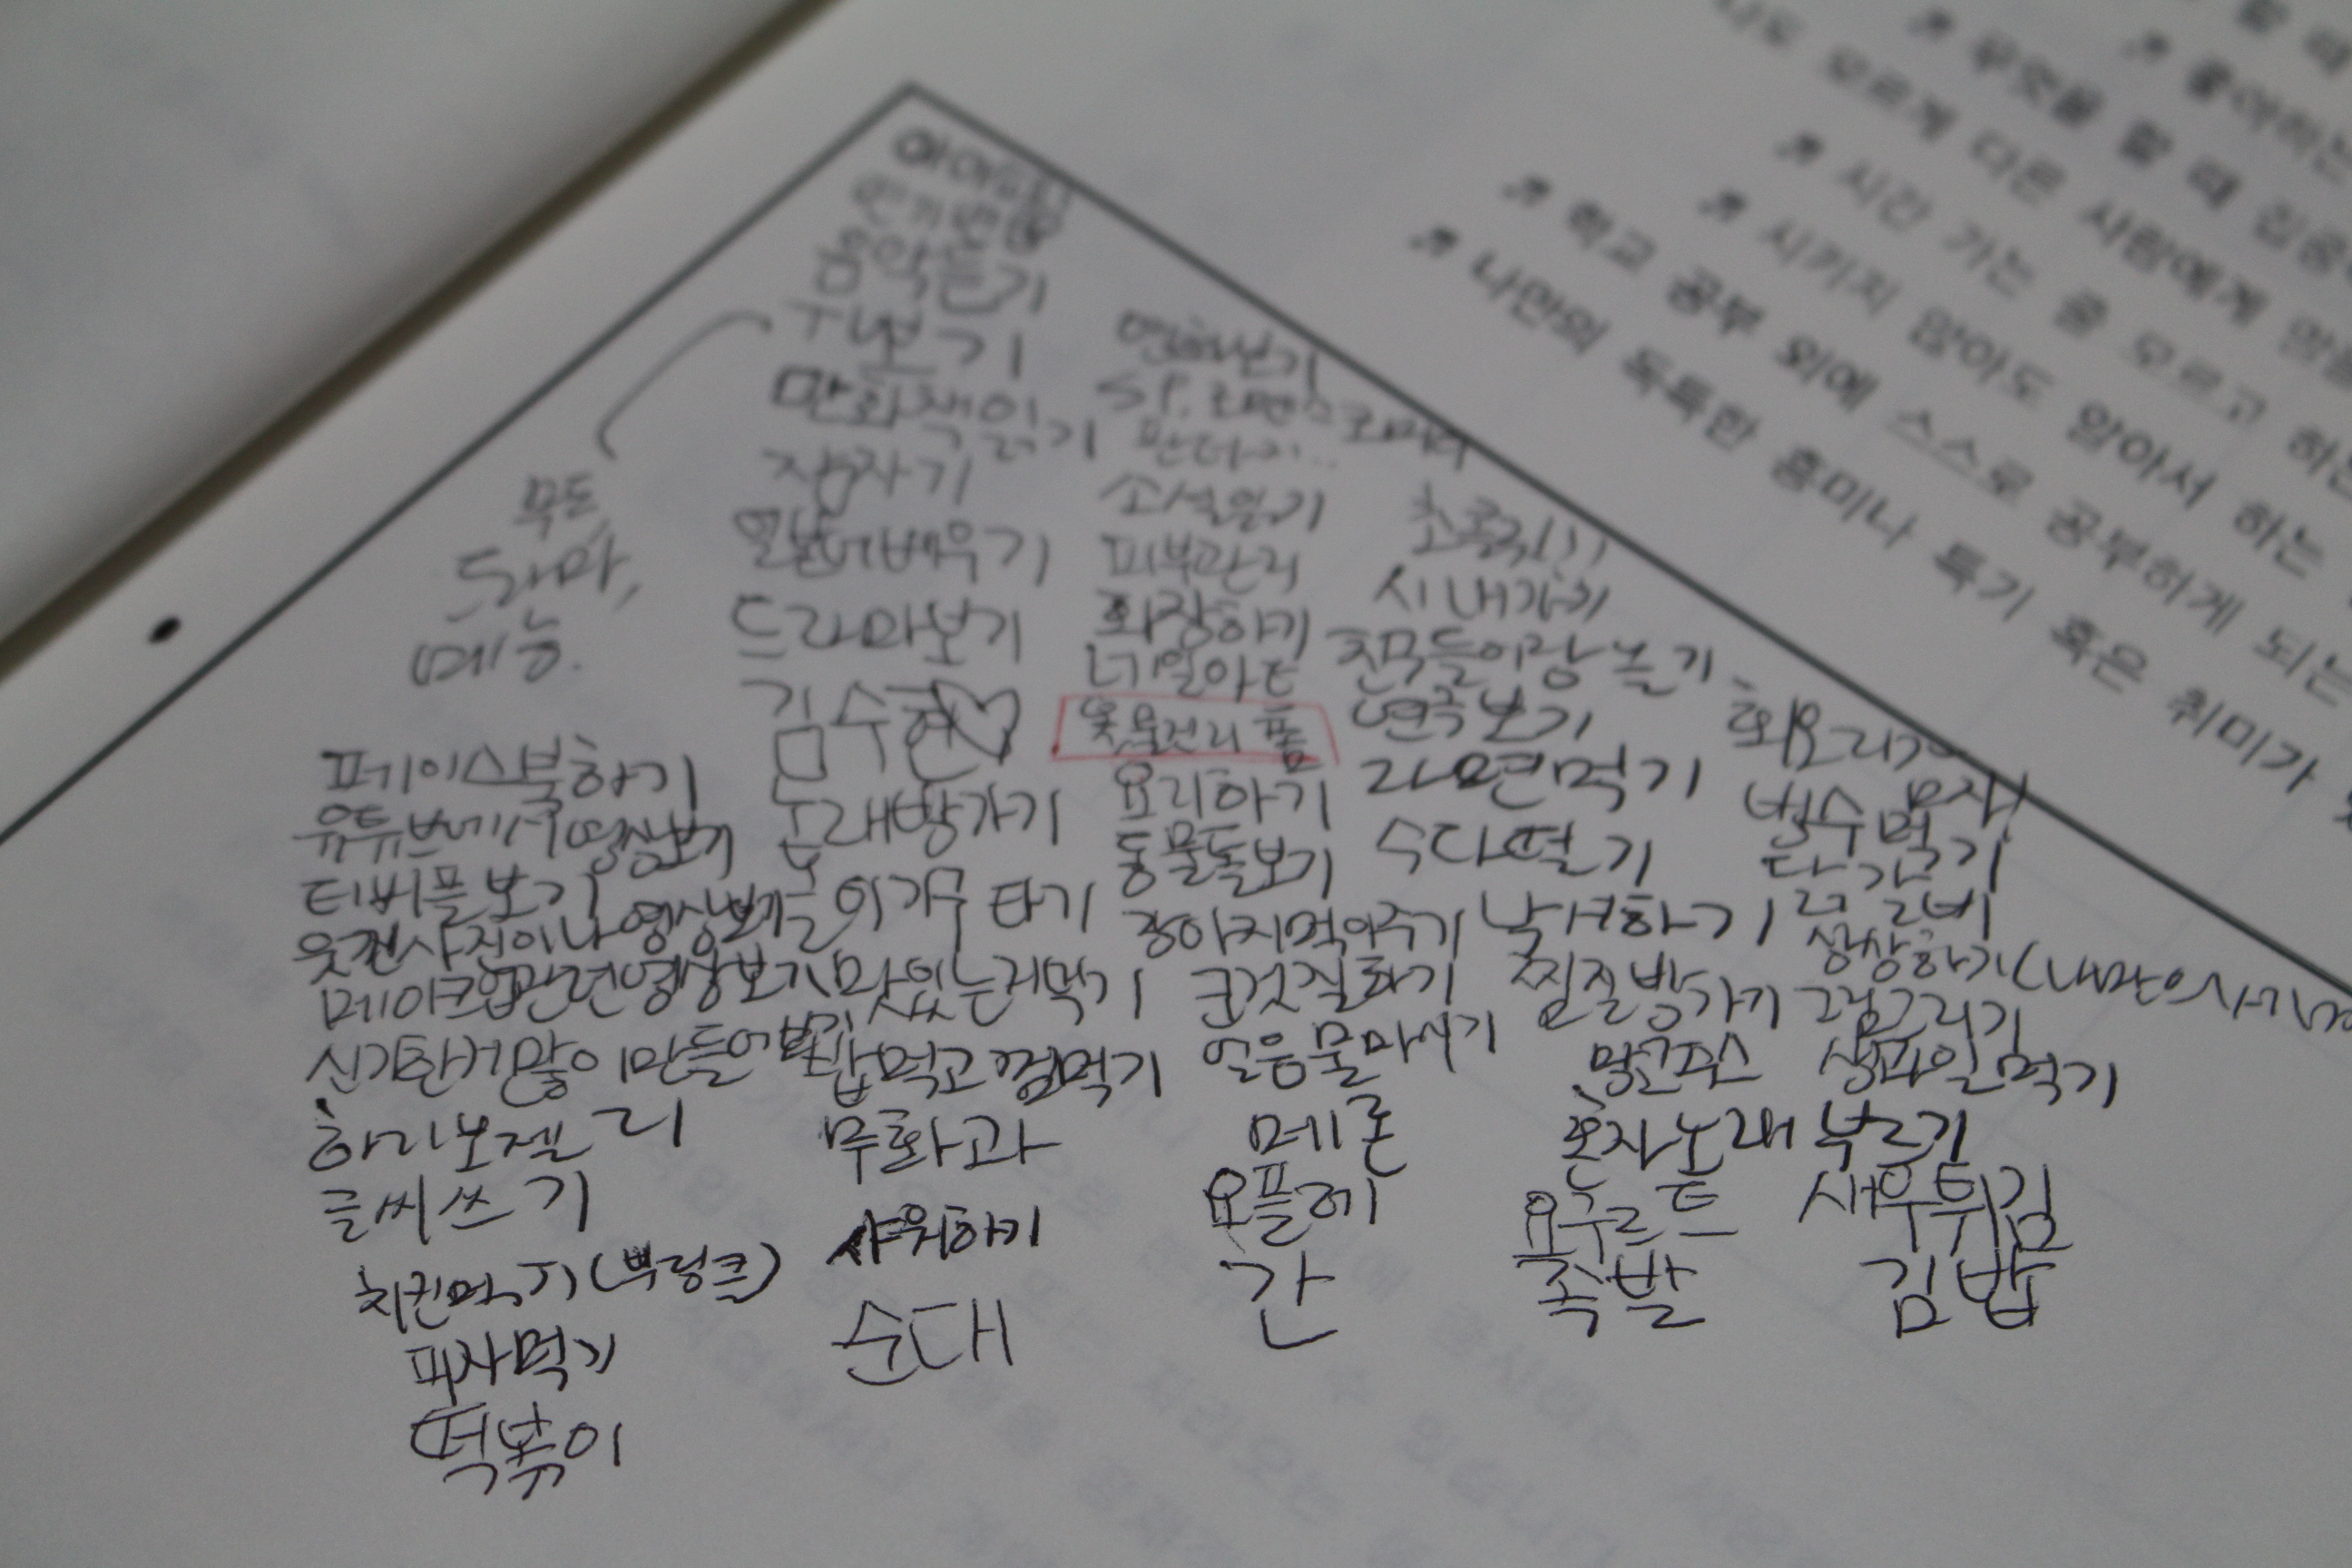 음악듣기
TV보기
만화책읽기
잠자기
일본어배우기
드라마보기
김수현♡
노래방가기
놀이기구 타기
맛있는거먹기
밥먹고 껌먹기
무화과
샤워하기
순대
무도,
드라마,
예능.
페이스북하기
유튜브에서 영상보기
티비플 보기
웃긴사진이나 영상보기
메이크업관련영상보기
신기한거많이 만들어보기
하리보젤리
글씨쓰기
치킨먹기(뿌링클)
피자먹기
떡볶이
영화보기
SF. 로맨스코미디
판타지..
소설읽기
피부관리
화장하기
네일아트
옷,물건리폼
요리하기
동물돌보기
강아지먹이주기
군것질하기
얼음물마시기
메론
요플레
간
시내가기
친구들이랑 놀기
연극보기
라면먹기
수다떨기
낙서하기
찜질방가기
망고쥬스
혼자노래 부르기
요구르트
족발
닭갈비
상상하기(나만의
그림그리기
생과일먹기
새우튀김
김밥
↗ 무엇을 할 때 집중
모르게 다른 사람에게
↗ 시간 가는 줄 모르고 하는
↗ 시키지 않아도 알아서 하는
↗ 학교 공부 외에 스스로 공부하게 되는
↗ 나만의 독특한 흥미나 특기 혹은 취미가